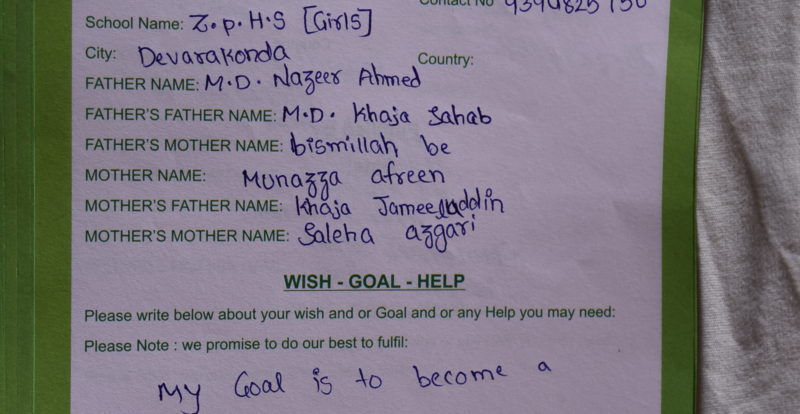 Contact No 9390825150
School Name: Z.p.H.S [Girls]
City: Devarakonda Country:
FATHER NAME: M.D. Nazeer Ahmed
FATHER'S FATHER NAME: M.D. Khaja Sahab
FATHER'S MOTHER NAME: bismillah be
MOTHER NAME: Munazza afreen
MOTHER'S FATHER NAME: Khaja Jameeluddin
MOTHER'S MOTHER NAME: Saleha azgari
WISH - GOAL - HELP
Please write below about your wish and or Goal and or any Help you may need:
Please Note : we promise to do our best to fulfil:
My Goal is to become a